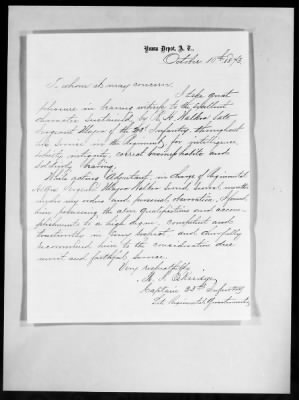 Yuma Depot, A. T.,
October 10th 1873.
To whom it may concern:
I take great
pleasure in bearing witness to the excellent
character sustained by Walker late
Sergeant Major of the 23d Infantry, throughout
his service in the Regiment, for intelligence
sobriety, integrity, correct business habits and
soldierly bearing.
While acting Adjutant, in charge of Regimental
Office Sergeant Major Walker served several months
under my orders and personal observation. I found
him possessing the above qualifications and accom-
plishments to a high degree. Competent and
trustworthy in every respect and cheerfully
recommend him to the consideration due
merit and faithful service.
Very respectfully,
Captain 23rd Infantry
Late Regimental Quartermaster